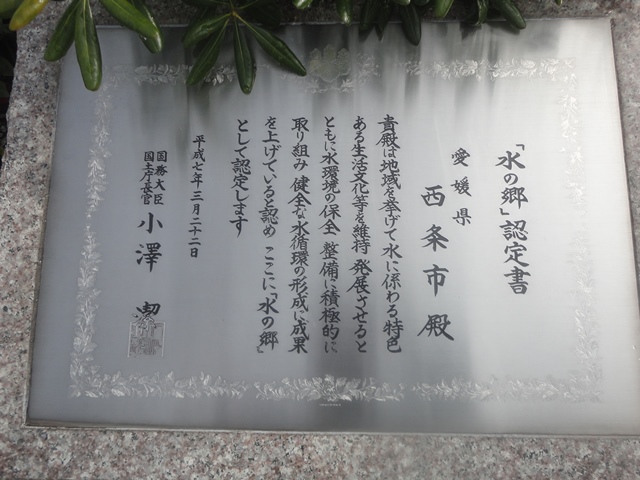 「水の郷」認定書
愛媛県
西条市殿
貴殿は地域を挙げて水に係わる特色
ある生活文化等を維持 発展させると
ともに水環境の保全 整備に積極的に
取り組み 健全な水循環の形成に成果
を上げていると認め ここに「水の郷」
として認定します
平成七年三月二十二日
国務大臣
国土庁長官
小澤 潔